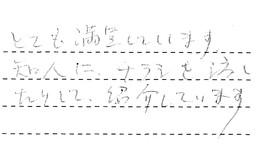 とても満足しています
知人に、チラシを渡し
たりして、紹介しています